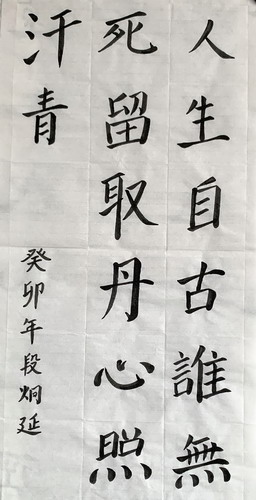 人生自古誰無
死留取丹心照
汗青
癸卯年段炯延